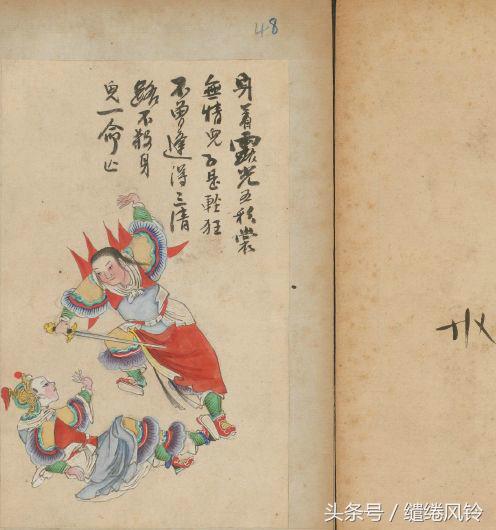 48
身着霞光五彩裳
無情兒是輕狂
不曾逢得三清
路不殺身
一命亡
头条号 / 缱绻风铃